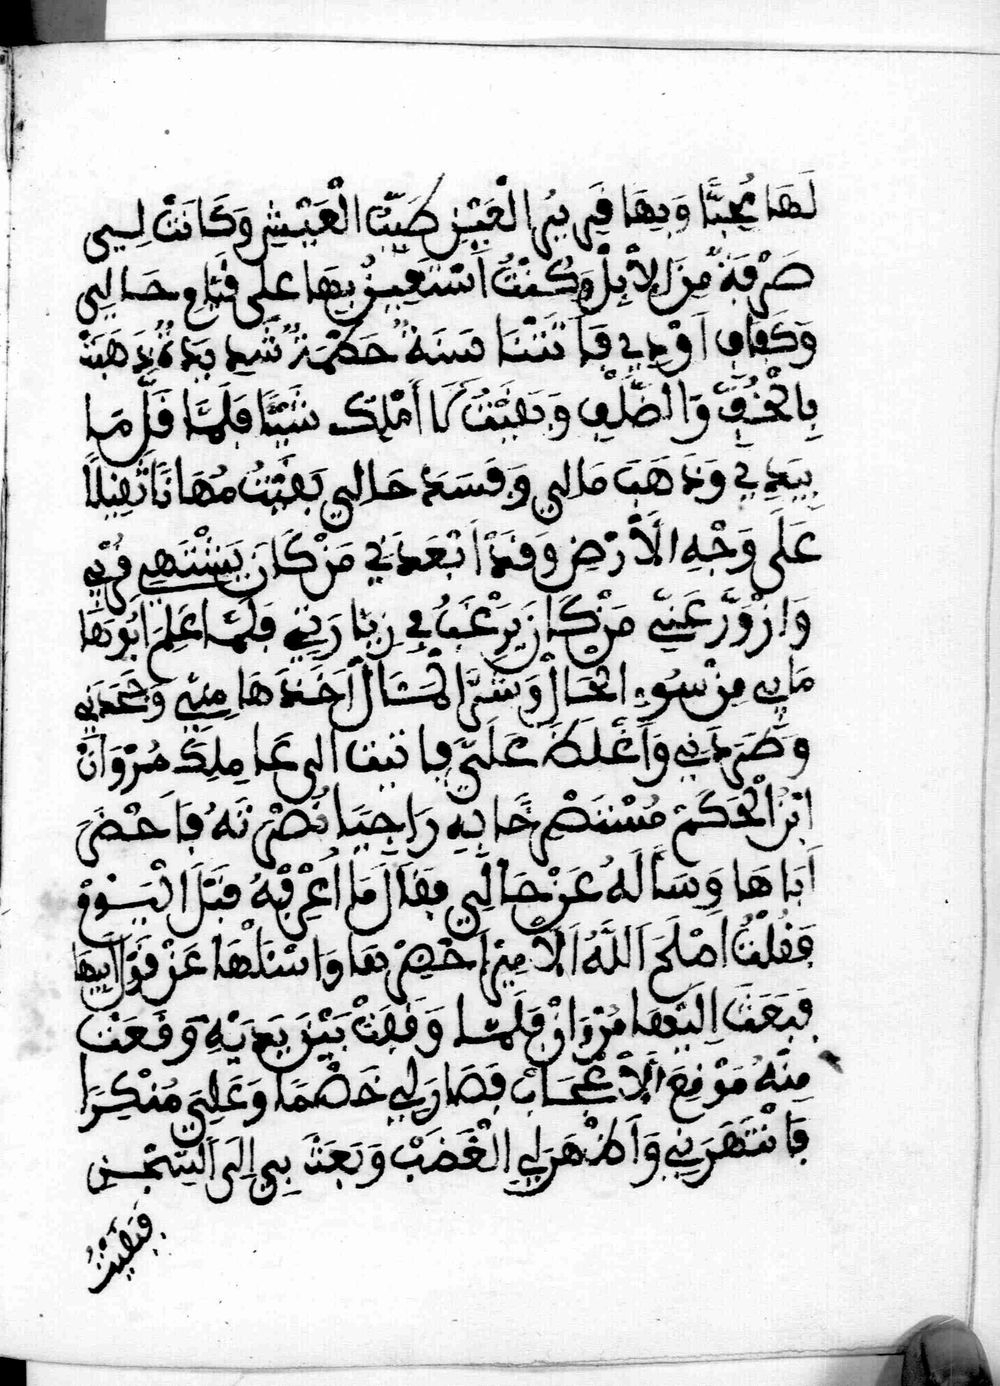 لَهَا مُحِبًّا وَبِهَا قَرِيرُ الْعَيْنِ طَيِّبُ الْعَيْشِ وَكَانَتْ لِي
صَرْمَةٌ مِنَ الْإِبِلْ وَكُنْتُ أَسْتَعِينُ بِهَا عَلَى قَيَامِ حَالِي
وَكَفَافِ أَوْدِي فَأَتَتْنَا سَنَةٌ حَطْمَةٌ شَدِيدَةٌ ذَهَبَتْ
بِالْخُفِّ وَالظِّلْفِ وَبَقِيتُ لَا أَمْلِكُ شَيْئًا فَلَمَّا قَلَّ مَا
بِيَدِي وَذَهَبَ مَالِي وَفَسَدَ حَالِي بَقِيتُ مُهَانًا ثَقِيلًا
عَلَى وَجْهِ الْأَرْضِ وَقَدْ أَبْعَدَنِي مَنْ كَانَ يَشْتَهِي قُرْبِي
وَازْوَرَّ عَنِّي مَنْ كَانَ يَرْغَبُ فِي زِيَارَتِي فَلَمَّا عَلِمَ أَبُوهَا
مَا بِي مِنْ سُوءِ الْحَالْ وَشَرِّ الْمَئَالْ أَخَذَهَا مِنِّي وَجَحَدَنِي
وَطَرَدَنِي وَأَغْلَظَ عَلَيَّ فَأَتَيْتُ إِلَى عَامِلِكَ مَرْوَانْ
ابْنُ الْحَكَمْ مُسْتَصْرِخًا بِهِ رَاجِيًا نُصْرَتَهُ فَأَحْضَرَ
أَبَاهَا وَسَأَلَهُ عَنْ حَالِي فَقَالَ مَا أَعْرِفُهُ قَبْلَ الْيَوْمْ
فَقُلْتُ أَصْلَحَ اللَّهُ الْأَمِيرَ أَحْضِرْهَا وَاسْئَلْهَا عَنْ قَوْلِ أَبِيهَا
فَبَعَثَ إِلَيْهَا مَرْوَانْ فَلَمَّا وَقَفَتْ بَيْنَ يَدَيْهِ وَقَعَتْ
مِنْهُ مَوْقِعَ الْإِعْجَابْ فَصَارَ لِي خَصْمًا وَعَلَيَّ مُنْكِرًا
فَانْتَهَرَنِي وَأَظْهَرَ لِي الْغَضَبْ وَبَعَثَ بِي إِلَى السِّجْنِ
فَبَقِيتُ